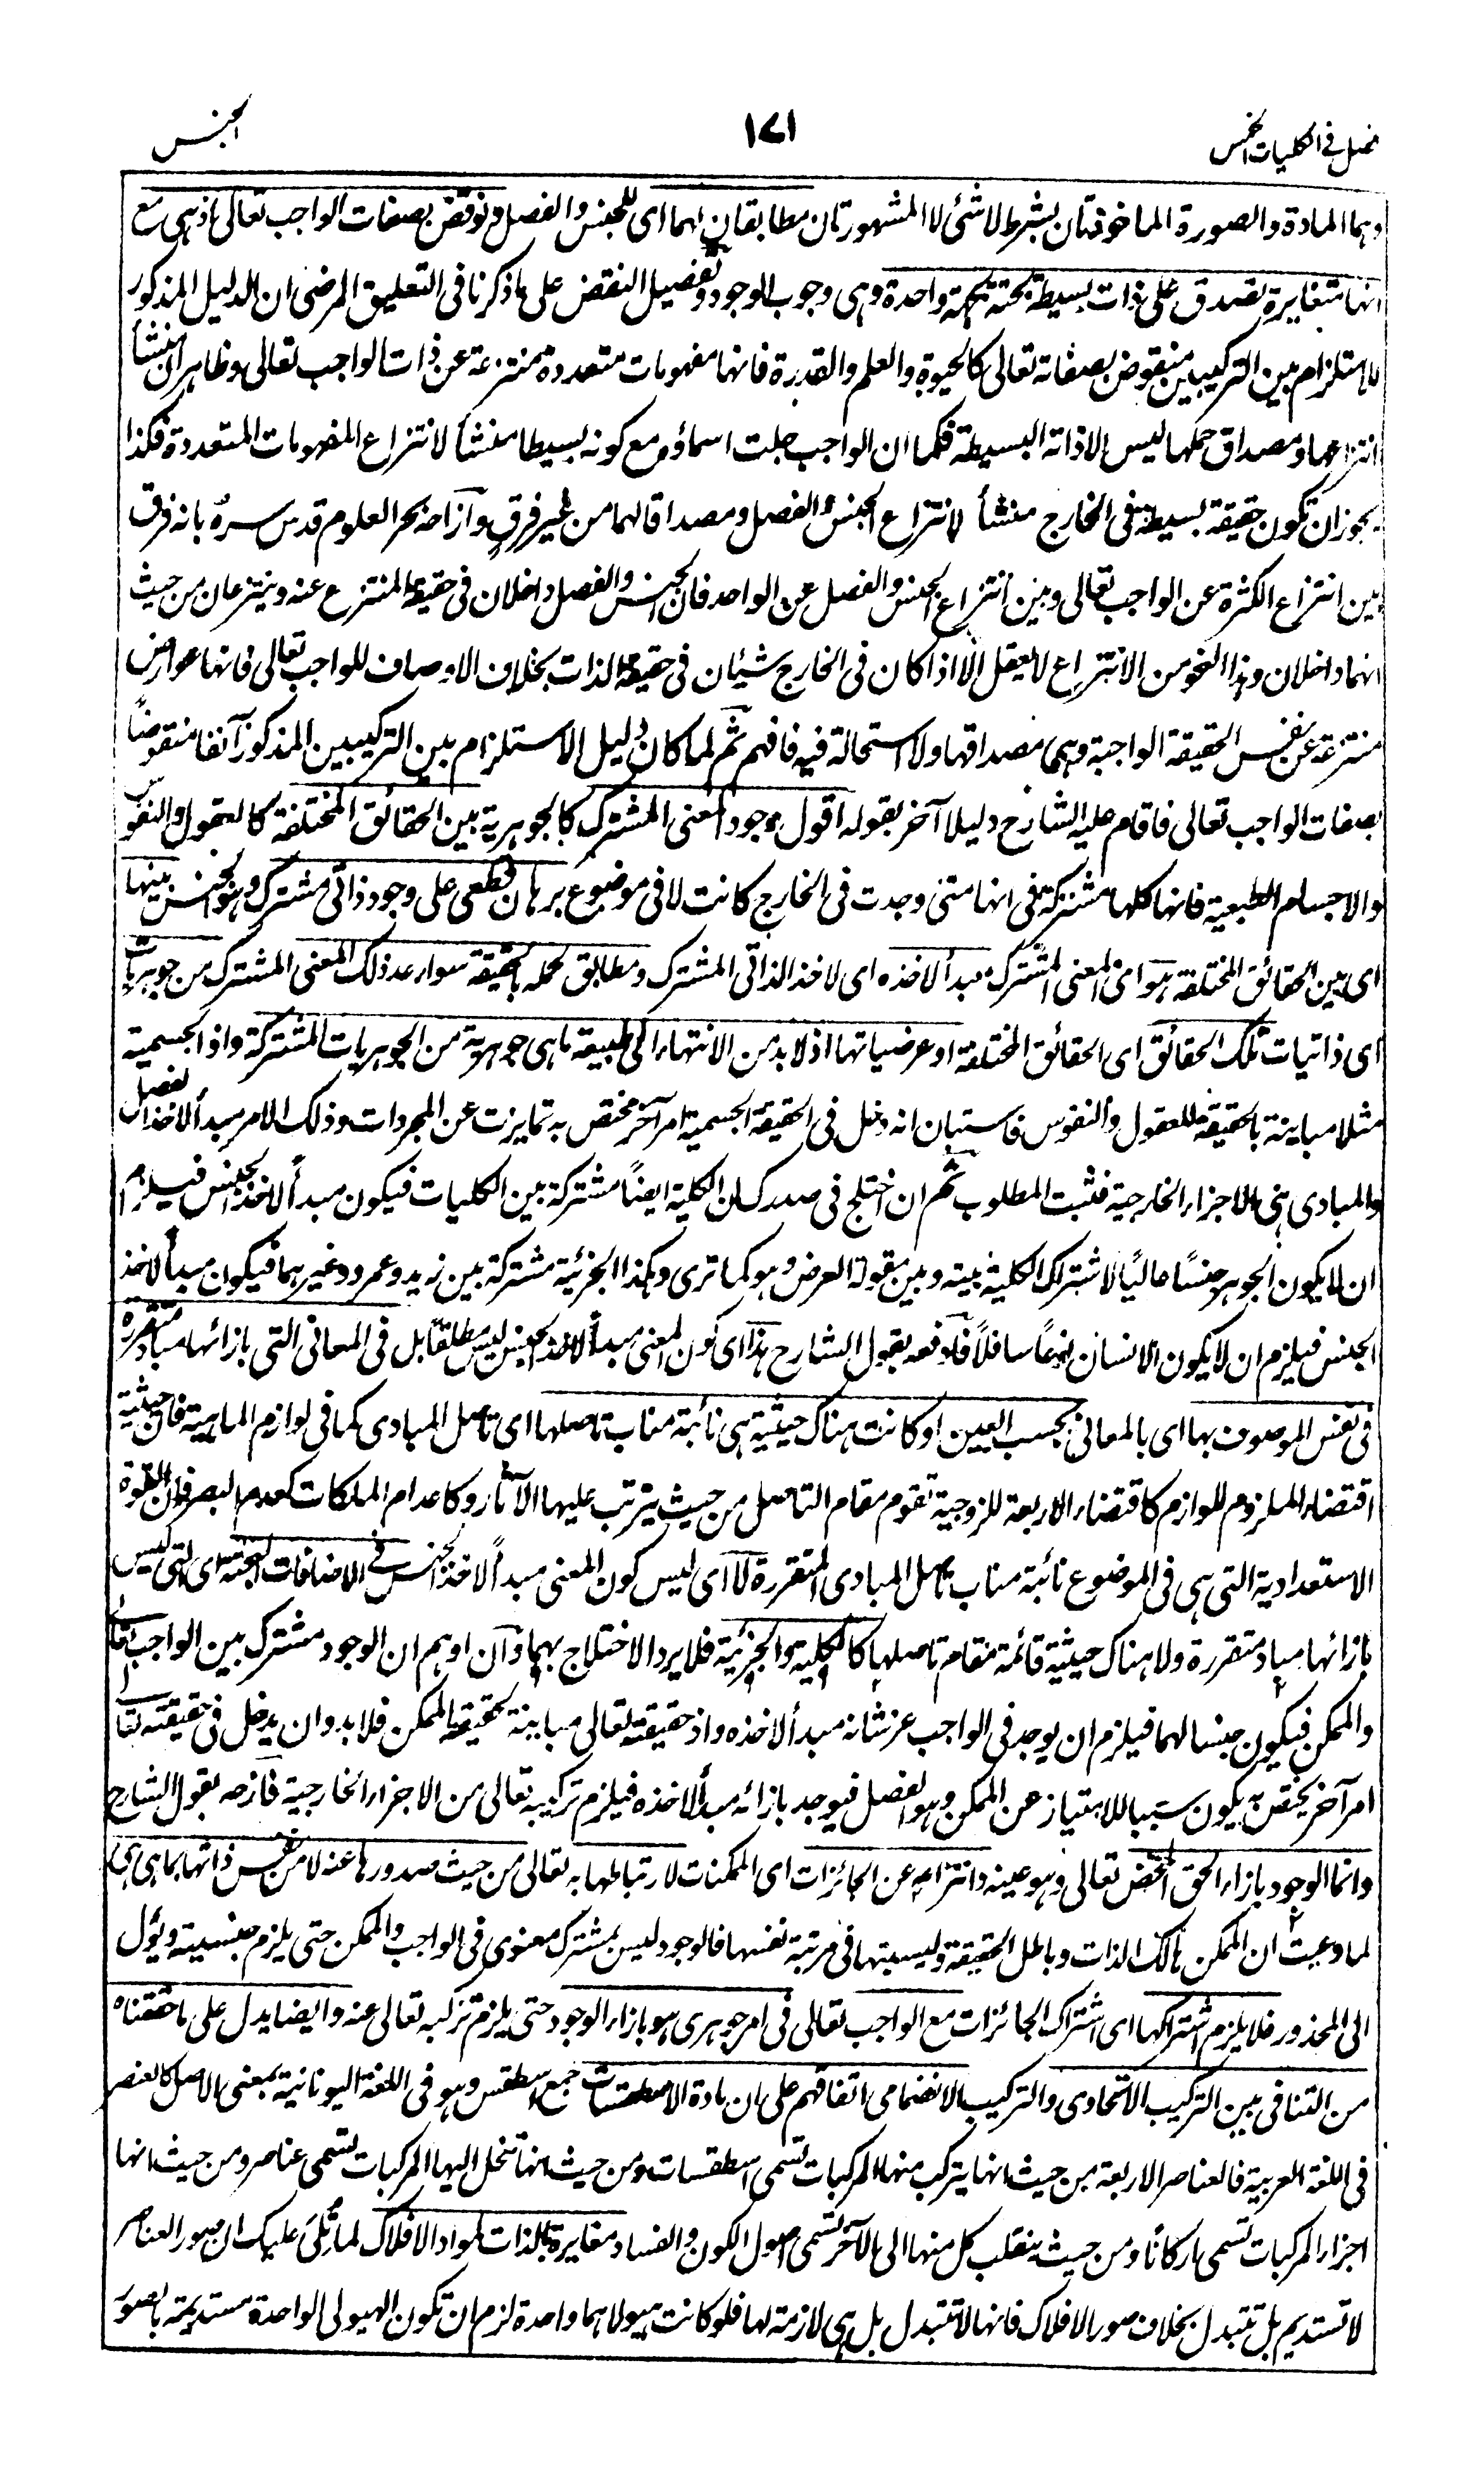 فصل في الكليات الخمس
١٧١
الجنس
وهما المادة والصورة الماخوذتان بشرط لا شئ لا المشهورتان مطابقان بهما اى للجنس والفصل ونوقض بصفات الواجب تعالى اذ هى مع
انها متغايرة تصدق على ذات بسيطة بحتة بجهة واحدة وهى وجوب الوجود وتفصيل النقض على ما ذكرنا فى التعليق المرضى ان الدليل المذكور
للاستلزام بين التركيبين منقوض بصفاته تعالى كالحيوة والعلم والقدرة فانها مفهومات متعددة منتزعة عن ذات الواجب تعالى وظاهر ان منشأ
انتزاعها ومصداق حملها ليس الا ذاته البسيطة فكما ان الواجب جلت اسماؤه مع كونه بسيطا منشأ لانتزاع المفهومات المتعددة فكذا
يجوز ان تكون حقيقة بسيطة فى الخارج منشأ لانتزاع الجنس والفصل ومصداقا لهما من غير فرق وازاحه بحر العلوم قدس سره بانه فرق
بين انتزاع الكثرة عن الواجب تعالى وبين انتزاع الجنس والفصل عن الواحد فان الجنس والفصل داخلان فى حقيقة المنتزع عنه وينتزعان من حيث
انهما داخلان وهذا النحو من الانتزاع لا يعقل الا اذا كان فى الخارج شيئان فى حقيقة الذات بخلاف الاوصاف للواجب تعالى فانها عوارض
منتزعة عن نفس الحقيقة الواجبة وهى مصداقها ولا استحالة فيه فافهم ثم لما كان دليل الاستلزام بين التركيبين المذكور آنفا منقوضاً
بصفات الواجب تعالى فاقام عليه الشارح دليلا آخر بقوله اقول وجود المعنى المشترك كالجوهرية بين الحقائق المختلفة كالعقول والنفوس
والاجسام الطبعية فانها كلها مشتركة فى انها متى وجدت فى الخارج كانت لا فى موضوع برهان قطعى على وجود ذاتى مشترك وهو الجنس بينها
اى بين الحقائق المختلفة هو اى المعنى المشترك مبدأ لاخذه اى لاخذ الذاتى المشترك ومطابق لحمله بالحقيقة سواء عد ذلك المعنى المشترك من جوهريات
اى ذاتيات تلك الحقائق اى الحقائق المختلفة او عرضياتها اذ لا بد من الانتهاء الى طبيعة ما هى جوهرية من الجوهريات المشتركة واذ الجسمية
مثلا مباينة بالحقيقة للعقول والنفوس فاستبان انه دخل فى الحقيقة الجسمية امر آخر مختص به تمايزت عن المجردات وذلك الامر مبدأ لاخذ الفصل
والمبادى هى الاجزاء الخارجية فثبت المطلوب ثم ان اختلج فى صدرك ان الكلية ايضاً مشتركة بين الكليات فيكون مبدأ لاخذ الجنس فيلزم
ان لا يكون الجوهر جنساً عالياً لاشتراك الكلية بينه وبين مقولة العرض وهو كما ترى وهكذا الجزئية مشتركة بين زيد وعمرو وغيرهما فيكون مبدأ لاخذ
الجنس فيلزم ان لا يكون الانسان نوعاً سافلاً فادفعه بقول الشارح هذا اى كون المعنى مبدأ لاخذ الجنس ليس مطلقا بل فى المعانى التى بازائها مباد متقررة
فى نفس الموصوف بها اى بالمعانى بحسب العين او كانت هناك حيثية هى نائبة مناب تاصلها اى تاصل المبادى كما فى لوازم الماهية فان حيثية
اقتضاء الملزوم للوازم كاقتضاء الاربعة للزوجية تقوم مقام التاصل من حيث يترتب عليها الآثار وكاعدام الملكات كعدم البصر فان القوة
الاستعدادية التى هى فى الموضوع نائبة مناب تاصل المبادى المتقررة لا اى ليس كون المعنى مبدأ لاخذ الجنس فى الاضافات البحتة اى التى ليس
بازائها مباد متقررة ولا هناك حيثية قائمة مقام تاصلها كالكلية والجزئية فلا يرد الاختلاج بهما وان اوهم ان الوجود مشترك بين الواجب تعالى
والممكن فيكون جنسا لهما فيلزم ان يوجد فى الواجب عز شانه مبدأ لاخذه واذ حقيقته تعالى مباينة لحقيقة الممكن فلا بد وان يدخل فى حقيقته تعالى
امر آخر يختص به يكون سببا للامتياز عن الممكن وهو الفصل فيوجد بازائه مبدأ لاخذه فيلزم تركيبه تعالى من الاجزاء الخارجية فازحه بقول الشارح
وانما الوجود بازاء الحق المحض تعالى وهو عينه وانتزاعه عن الجائزات اى الممكنات لارتباطها به تعالى من حيث صدورها عنه لا من نفس ذاتها بما هى هى
لما وعيت ان الممكن هالك الذات وباطل الحقيقة وليسيتها فى مرتبة نفسها فالوجود ليس بمشترك معنوى فى الواجب والممكن حتى يلزم جنسيته ويؤل
الى المحذور فلا يلزم اشتراكها اى اشتراك الجائزات مع الواجب تعالى فى امر جوهرى هو بازاء الوجود حتى يلزم تركبه تعالى عنه وايضا يدل على ما حققناه
من التنافى بين التركيب الاتحادى والتركيب الانضمامى اتفاقهم على ان مادة الاسطقسات جمع اسطقس وهو فى اللغة اليونانية بمعنى الاصل كالعنصر
فى اللغة العربية فالعناصر الاربعة من حيث انها يتركب منها المركبات تسمى اسطقسات ومن حيث انها تنحل اليها المركبات تسمى عناصر ومن حيث انها
اجزاء المركبات تسمى اركاناً ومن حيث ينقلب كل منها الى الآخر تسمى اصول الكون والفساد مغايرة بالذات لمواد الافلاك لما تُلِىَ عليك ان صور العناصر
لا تستديم بل تتبدل بخلاف صور الافلاك فانها لا تتبدل بل هى لازمة لها فلو كانت هيولاهما واحدة لزم ان تكون الهيولى الواحدة مستديمة بالصور